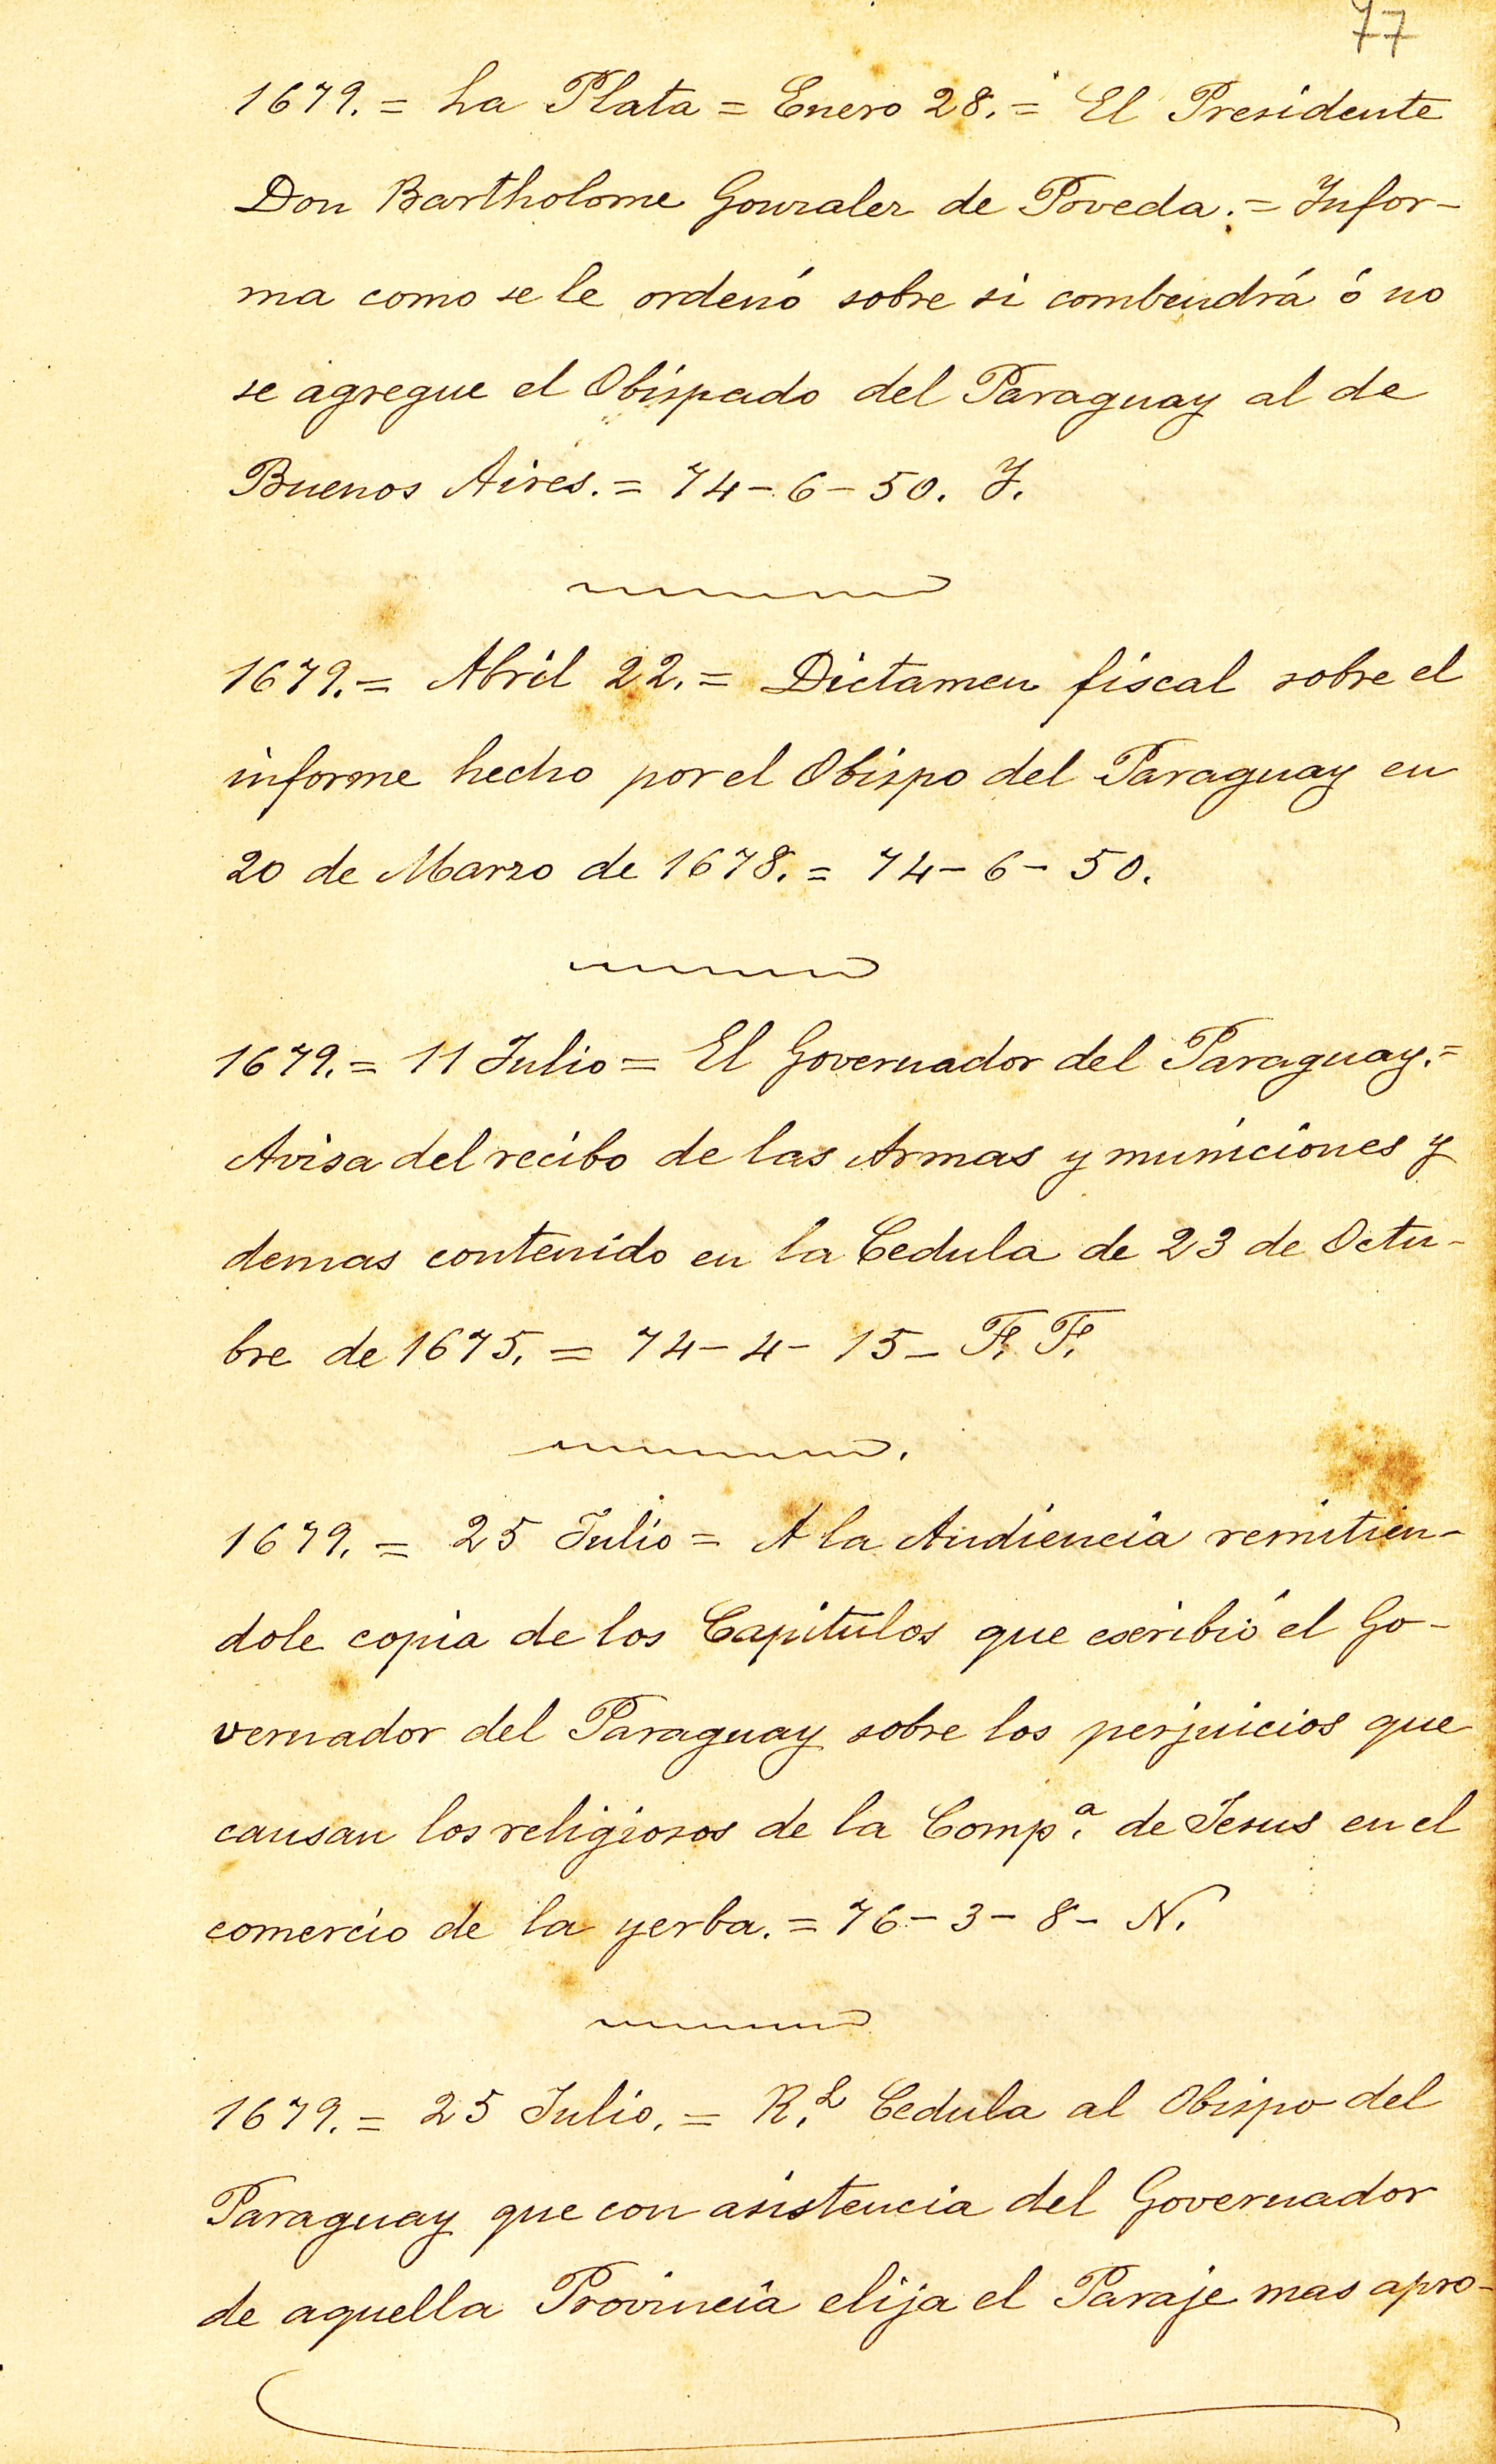 77
1679. = La Plata = Enero 28. = El Presidente
Don Bartholome Gonzalez de Poveda. = Infor-
ma como se le ordenó sobre si combendrá ó no
se agregue el Obispado del Paraguay al de
Buenos Aires. = 74-6-50. Y.
1679. = Abril 22. = Dictamen fiscal sobre el
informe hecho por el Obispo del Paraguay en
20 de Marzo de 1678. = 74-6-50.
1679. = 11 Julio = El Governador del Paraguay. =
Avisa del recibo de las Armas y municiones y
demas contenido en la Cedula de 23 de Octu-
bre de 1675. = 74-4-15- F. F.
1679. = 25 Julio = A la Audiencia remitien-
dole copia de los Capitulos que escribió el Go-
vernador del Paraguay sobre los perjuicios que
causan los religiosos de la Comp.ª de Jesus en el
comercio de la yerba. = 76-3-8- N.
1679. = 25 Julio. = R.l Cedula al Obispo del
Paraguay que con asistencia del Governador
de aquella Provincia elija el Paraje mas apro-